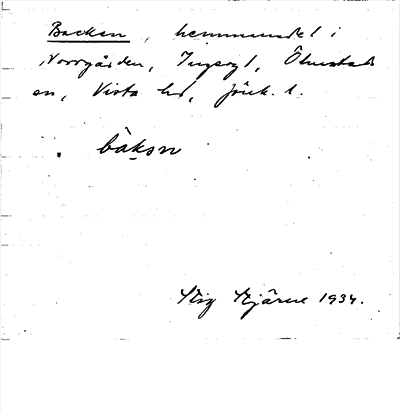 Backen, hemmansdel i
Norrgården, Ingeryd, Ölmstads
sn, Vista hd, Jönk. l.
bàkǝn
Stig Stjärne 1934.